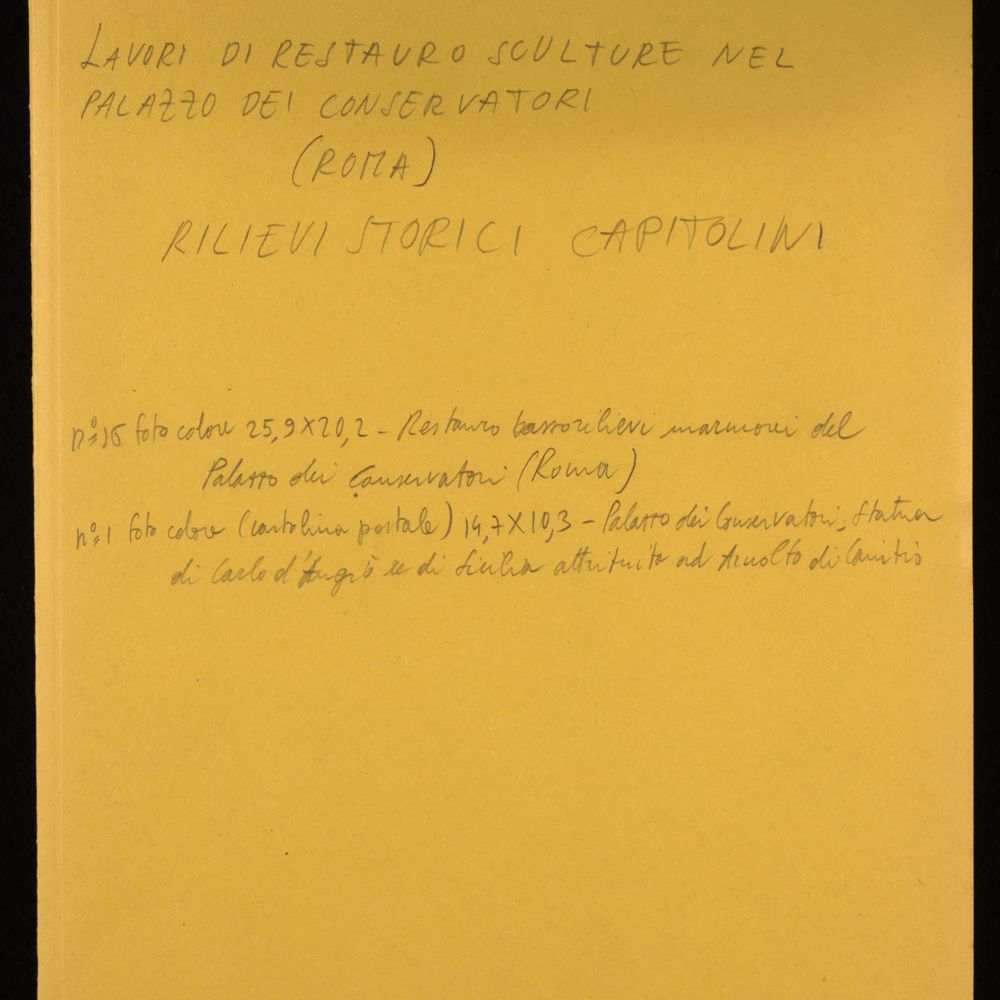 LAVORI DI RESTAURO SCULTURE NEL
PALAZZO DEI CONSERVATORI
(ROMA)
RILIEVI STORICI CAPITOLINI
foto colore 25,9X20,2 - Restauro bassorilievi marmorei del
Palazzo dei Conservatori (Roma)
n° 1 foto colore (cartolina postale) 14,7X10,3 - Palazzo dei Conservatori, Statua
di Carlo d'Angiò re di Sicilia attribuita ad Arnolfo di Cambio